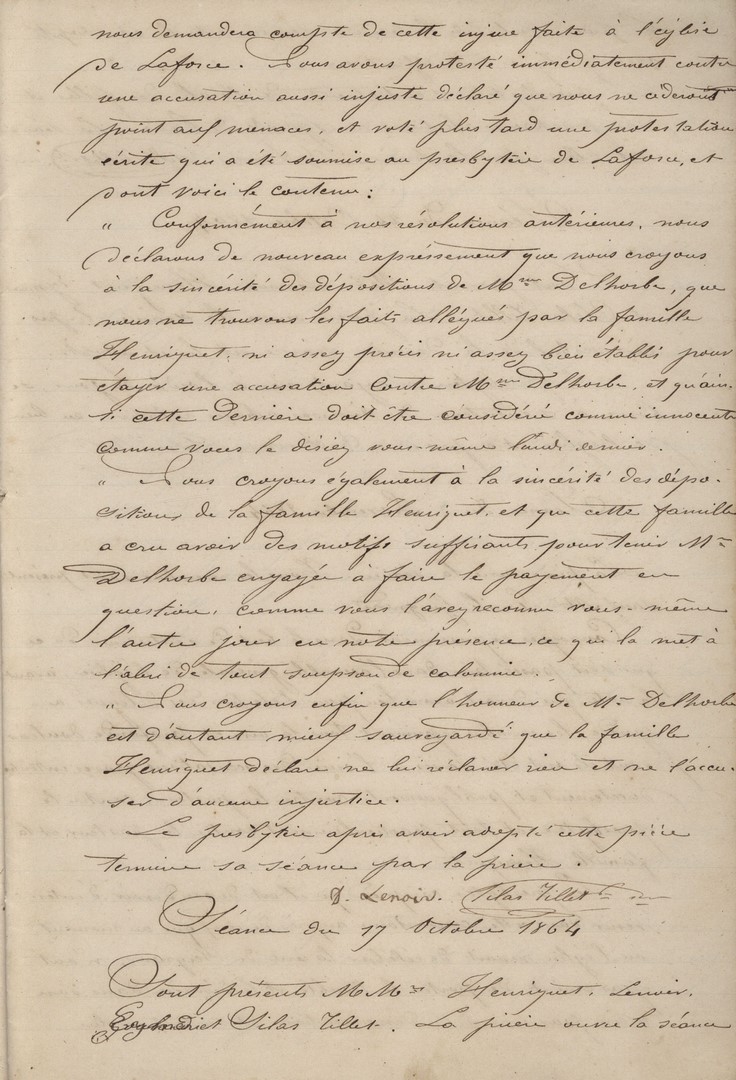 nous demandera compte de cette injure faite à l'église
de Laforce. Nous avons protesté immédiatement contre
une accusation aussi injuste déclaré que nous ne céderons
point aux menaces, et voté plus tard une protestation
écrite qui a été soumise au presbytère de Laforce, et
dont voici le contenu :
" Conformément à nos résolutions antérieures, nous
déclarons de nouveau expressément que nous croyons
à la sincérité des dépositions de Mme Delhorbe, que
nous ne trouvons les faits allégués par la famille
Henriquet, ni assez précis ni assez bien établis pour
étayer une accusation contre Mme Delhorbe, et qu'ain-
si cette dernière doit être considéré comme innocente
comme vous le disiez vous-même lundi dernier.
" Nous croyons également à la sincérité des dépo-
sitions de la famille Henriquet, et que cette famille
a cru avoir des motifs suffisants pour tenir Me
Delhorbe engagée à faire le payement en
question, comme vous l'avez reconnu vous-même
l'autre jour en notre présence, ce qui la met à
l'abri de tout soupson de calomnie.
" Nous croyons enfin que l'honneur de Me Delhorbe
est d'autant mieux sauvegardé que la famille
Henriquet déclare ne lui réclamer rien et ne l'accu-
ser d'aucune injustice.
Le presbytère après avoir adopté cette pièce
termine sa séance par la prière.
D. Lenoir. Silas Tillet
Séance du 17 Octobre 1864
Sont présents MMrs Henriquet, Lenoir,
et Silas Tillet. La prière ouvre la séance